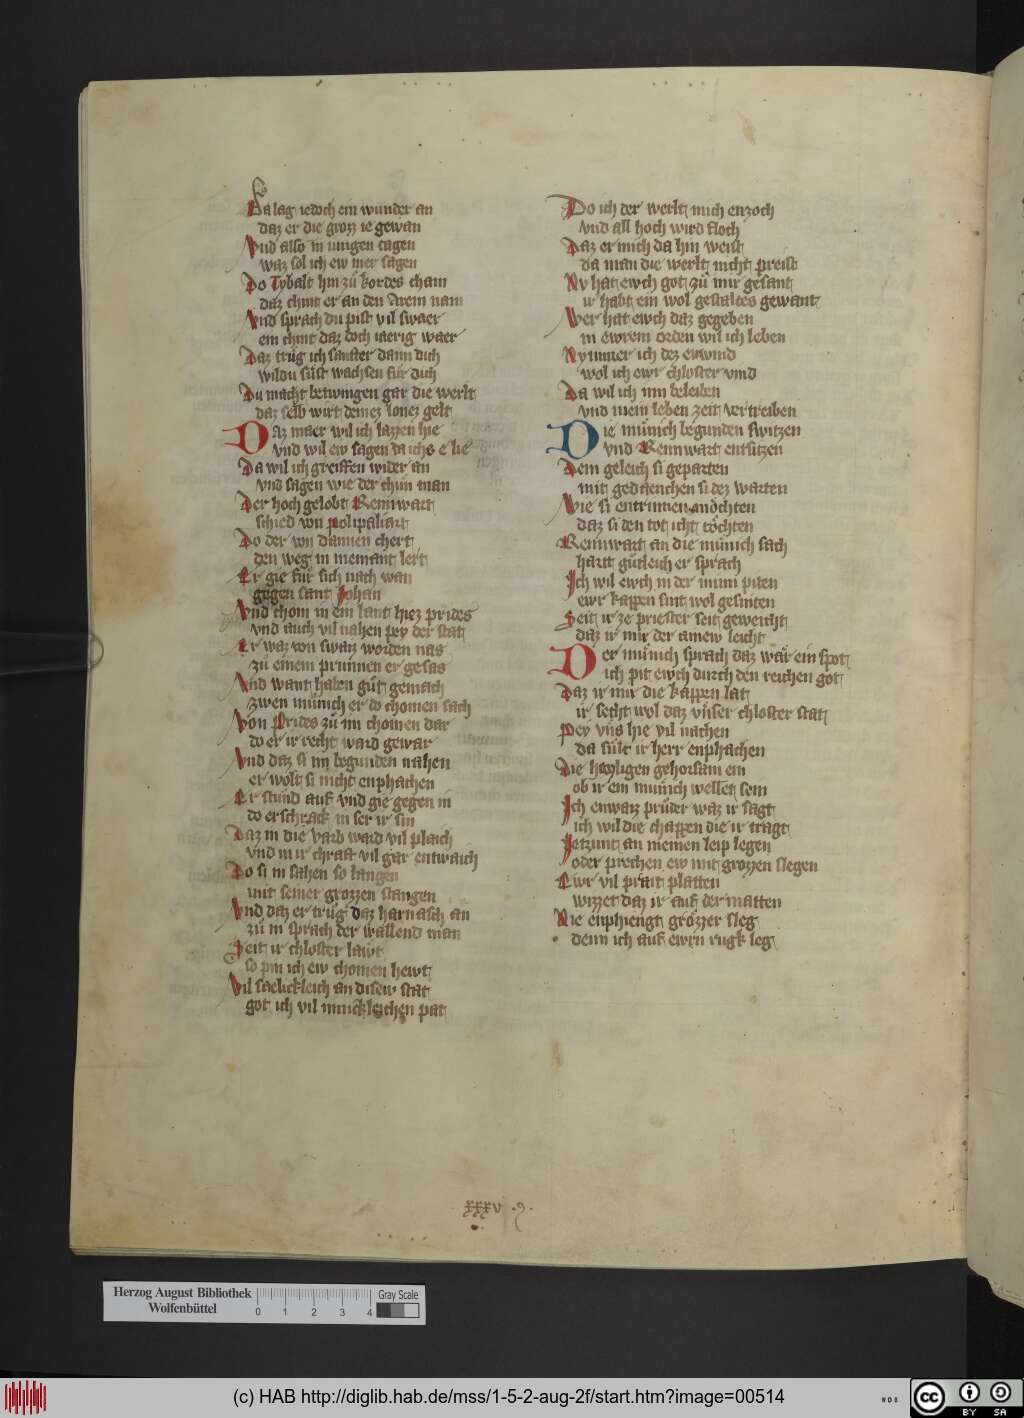 Da lag iedoch ein wunder an
daz er die grozz ie gewan
Vnd allso in iungen tagen
waz sol ich ew mer sagen
Do Tybalt hin zů kordes cham
daz chint er an den Arem nam
Vnd sprach du pist vil swaer
ein chint daz doch iaerig waer
Daz trůg ich sanfter dann dich
wildu sůst wachsen fůr dich
Du macht betwingen gar die werlt
daz selb wirt deinez lonez gelt
Daz maer wil ich lazzen hie
vnd wil ew sagen da ichs e lie
Da wil ich greiffen wider an
vnd sagen wie der chůn man
Der hoch gelobt Rennwart
schied von polipaliart
Do der von dannen chert
den weg in niemant lert
Er gie fůr sich nach wan
gegen sant Johan
Vnd chom in ein lant hiez prides
vnd auch vil nahen pey der stat
Er waz von swaizz worden nas
zů einem prunnen er gesas
Vnd want haben gůt gemach
zwen můnich er do chomen sach
Von Prides zů im chomen dar
do er ir recht ward gewar
Vnd daz si im begunden nahen
er wolt si nicht enphachen
Er stůnd auf vnd gie gegen in
do erschrack in ser ir sin
Daz in die varb ward vil plaich
vnd in ir chraft vil gar entwaich
Do si in sahen so langen
mit seiner grozzen stangen
Vnd daz er trůg daz harnasch an
zů in sprach der wallend man
Seit ir chloster lawt
so pin ich ew chomen hewt
Vil saelickleich an disew stat
got ich vil innickleichen pat
Do ich der werlt mich enzoch
vnd all hoch wird floch
Daz er mich da hin weist
da man die werlt nicht preist
Nv hat ewch got zů mir gesant
ir habt ein wol gestaltes gewant
Wer hat ewch daz gegeben
in ewrem orden wil ich leben
Nymmer ich dez erwind
wol ich ewr chloster vind
Da wil ich inn beleiben
vnd mein leben zeit vertreiben
Die můnich begunden switzen
vnd Rennwart entsitzen
Dem geleich si geparten
mit gedaenchen si dez warten
Wie si entrinnen möchten
daz si den tot icht töchten
Rennwart an die můnich sach
hart gůtleich er sprach
Ich wil ewch in der minn piten
ewr kappen sint wol gesniten
Seit ir ze priester seit geweicht
daz ir mir der ainew leicht
Der můnich sprach daz wär ein spot
ich pit ewch durch den reichen got
Daz ir mir die kappen lat
ir secht wol daz vnser chloster stat
Pey vns hie vil nachen
da sůlt ir herr enphachen
Die heyligen gehorsam ein
ob ir ein můnich wellet sein
Ich enwaiz průder waz ir sagt
ich wil die chappen die ir tragt
Jetzunt an meinen leip legen
oder prechen ew mit grozzen slegen
Ewr vil prait platten
wizzet daz ir auf der matten
Nie enphiengt grözzer sleg
denn ich auf ewrn rugk leg
xxxv ·9·
Herzog August Bibliothek
Wolfenbüttel
0 1 2 3 4
Gray Scale
(c) HAB http://diglib.hab.de/mss/1-5-2-aug-2f/start.htm?image=00514
WDB
cc BY SA